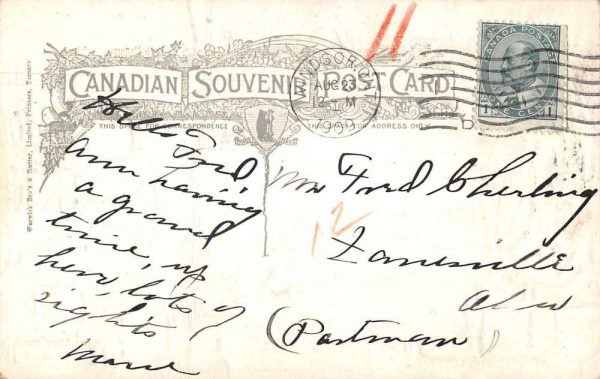 CANADIAN SOUVENIR POST CARD
THIS SPACE FOR CORRESPONDENCE
THIS SPACE FOR ADDRESS ONLY
Warwick Bro's & Rutter, Limited, Printers, Toronto
WINDSOR
AUG 23
CANADA POSTAGE
1 CENT 1
11
Hello Fred
am having
a grand
time, up
here lots of
sights
Mr Fred
12
Zanesville
Ohio
(Postman)